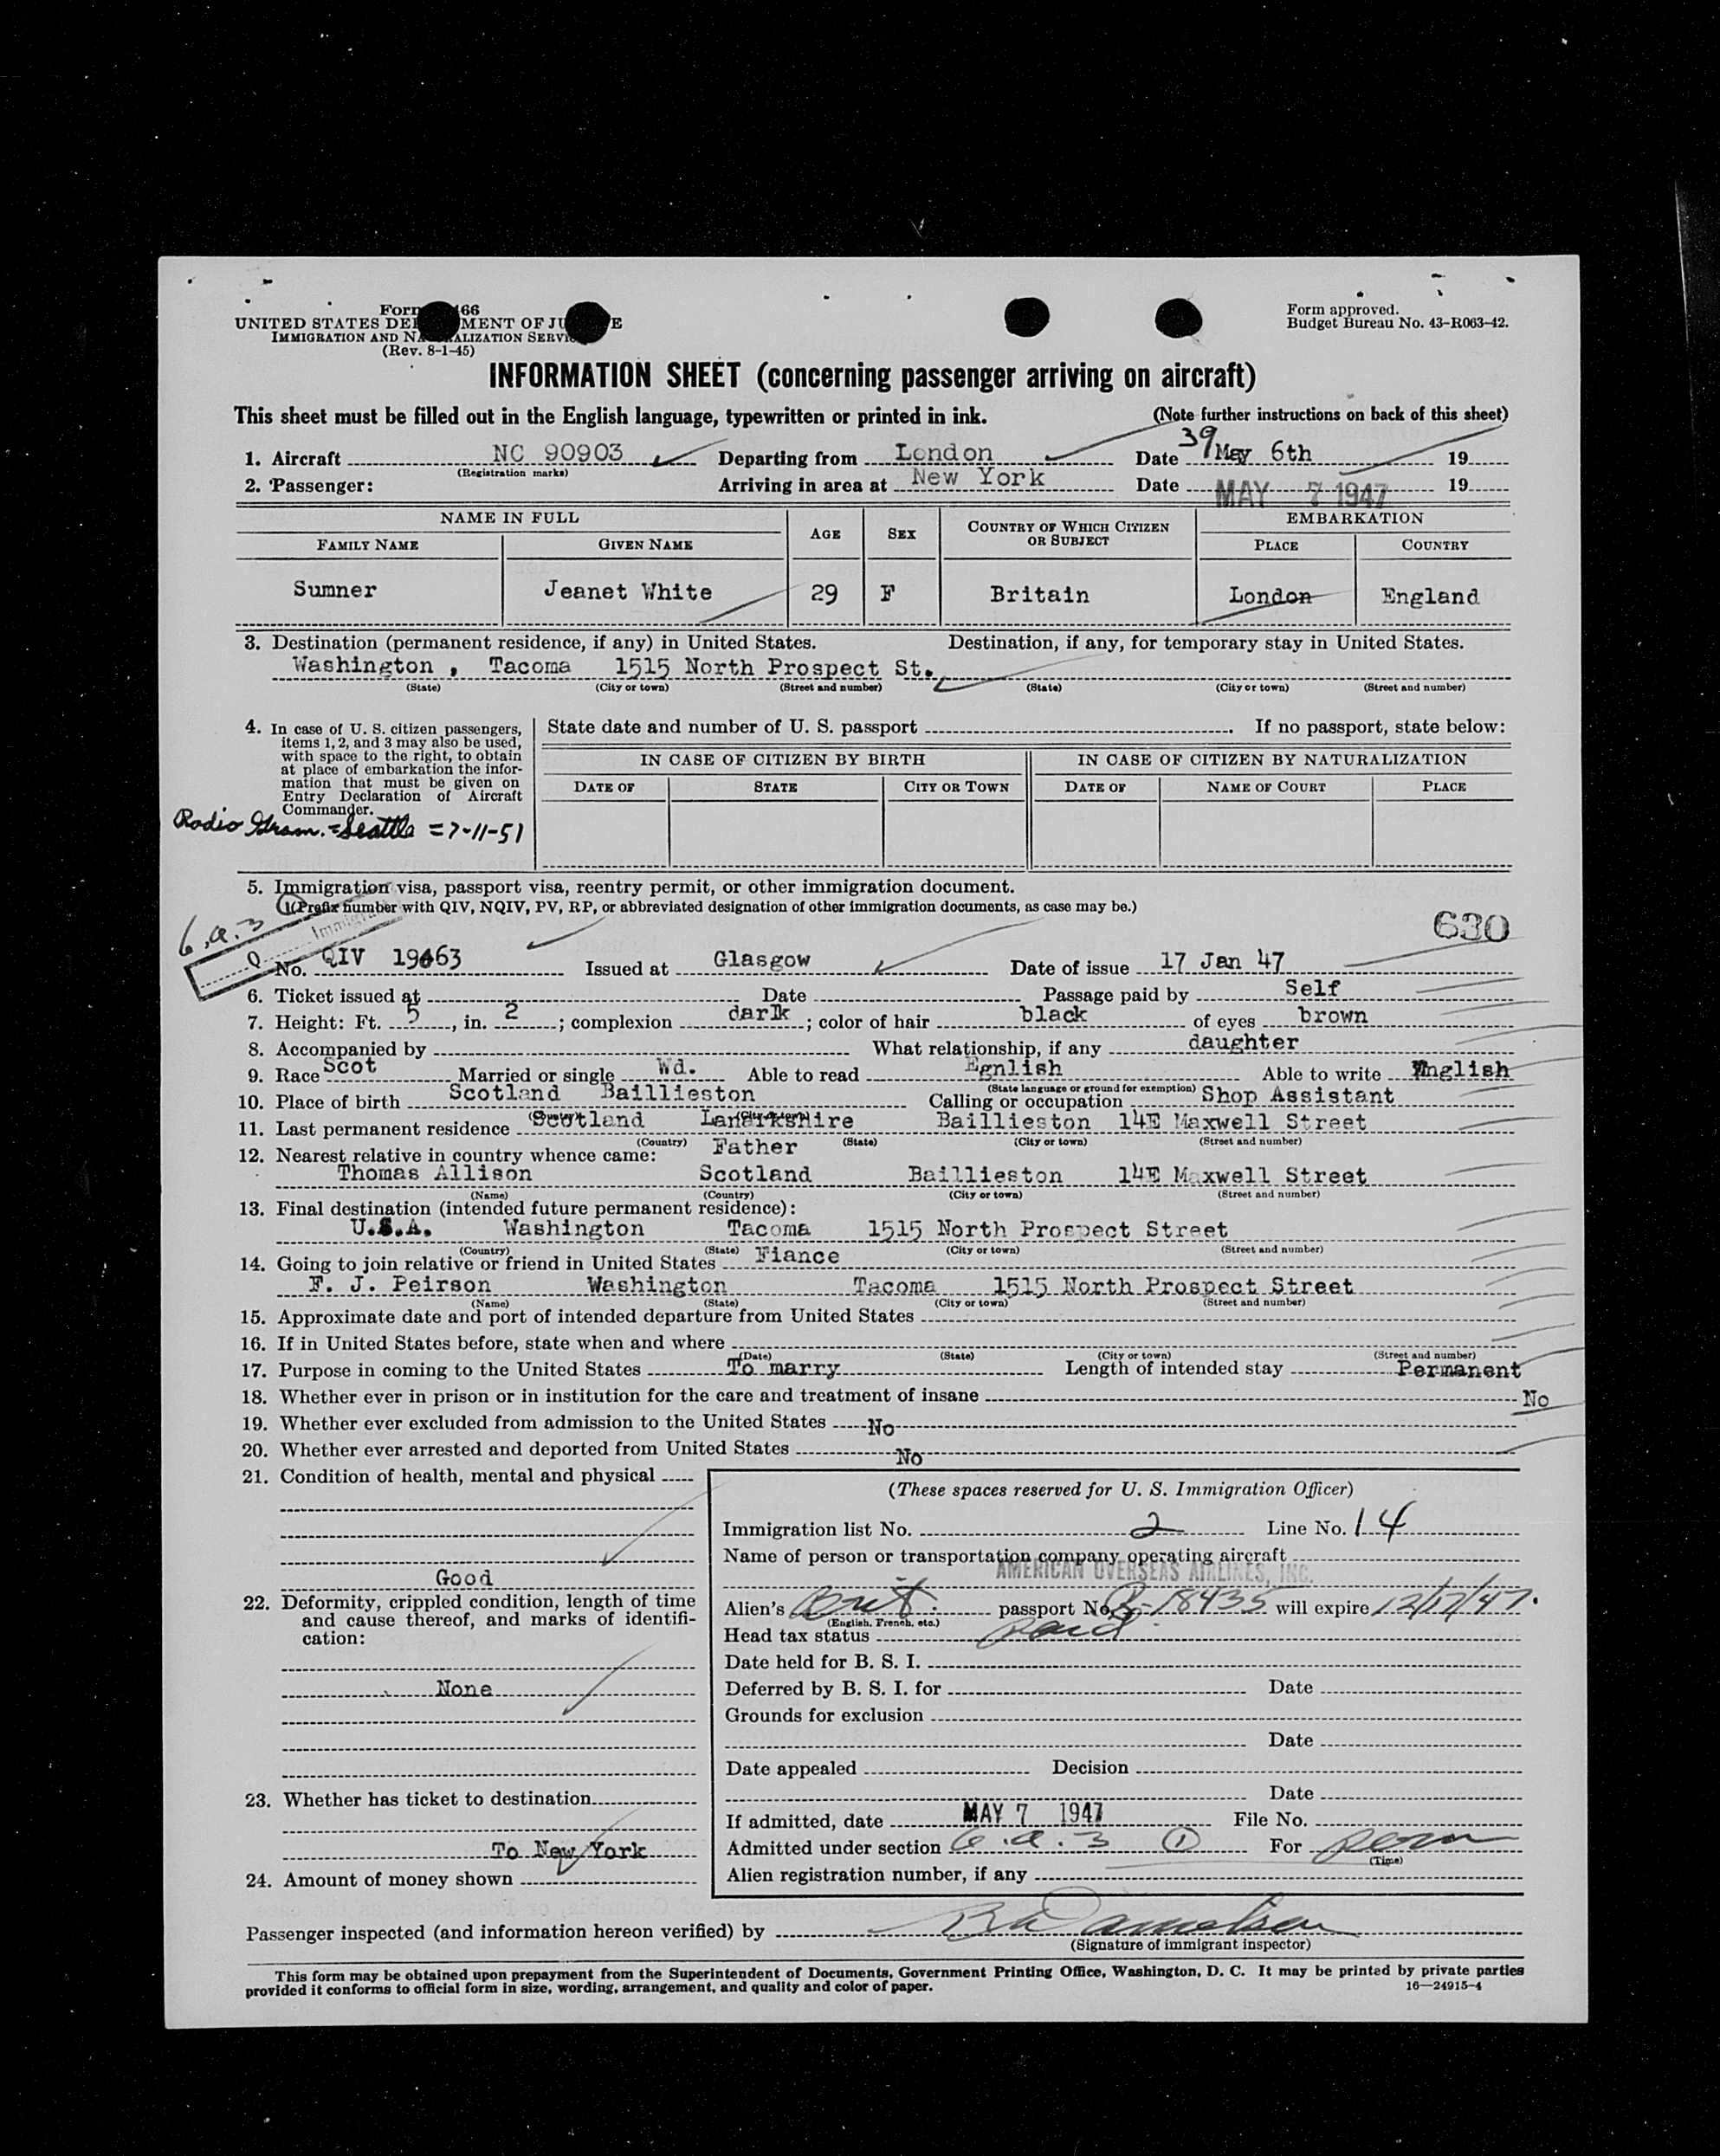 Form 66
UNITED STATES DE MENT OF JU E
IMMIGRATION AND NA ALIZATION SERVI
(Rev. 8-1-45)
Form approved.
Budget Bureau No. 43-R063-42.
INFORMATION SHEET (concerning passenger arriving on aircraft)
This sheet must be filled out in the English language, typewritten or printed in ink. (Note further instructions on back of this sheet)
39
1. Aircraft NC 90903 Departing from London Date May 6th 19
(Registration marks)
2. Passenger: Arriving in area at New York Date MAY 7 1947 19
NAME IN FULL AGE SEX COUNTRY OF WHICH CITIZEN OR SUBJECT EMBARKATION
FAMILY NAME GIVEN NAME PLACE COUNTRY
Sumner Jeanet White 29 F Britain London England
3. Destination (permanent residence, if any) in United States. Destination, if any, for temporary stay in United States.
Washington , Tacoma 1515 North Prospect St.
(State) (City or town) (Street and number) (State) (City or town) (Street and number)
4. In case of U. S. citizen passengers,
items 1, 2, and 3 may also be used,
with space to the right, to obtain
at place of embarkation the infor-
mation that must be given on
Entry Declaration of Aircraft
Commander.
Radio Gram. = Seattle = 7-11-51
State date and number of U. S. passport . If no passport, state below:
IN CASE OF CITIZEN BY BIRTH IN CASE OF CITIZEN BY NATURALIZATION
DATE OF STATE CITY OR TOWN DATE OF NAME OF COURT PLACE
5. Immigration visa, passport visa, reentry permit, or other immigration document.
(Prefix number with QIV, NQIV, PV, RP, or abbreviated designation of other immigration documents, as case may be.)
6.a.3
Q Immigrant
630
No. QIV 19463 Issued at Glasgow Date of issue 17 Jan 47
6. Ticket issued at Date Passage paid by Self
7. Height: Ft. 5, in. 2; complexion dark; color of hair black of eyes brown
8. Accompanied by What relationship, if any daughter
9. Race Scot Married or single Wd. Able to read Egnlish Able to write English
(State language or ground for exemption)
10. Place of birth Scotland Baillieston Calling or occupation Shop Assistant
(Country) (City or town)
11. Last permanent residence Scotland Lanarkshire Baillieston 14E Maxwell Street
(Country) (State) (City or town) (Street and number)
12. Nearest relative in country whence came: Father
Thomas Allison Scotland Baillieston 14E Maxwell Street
(Name) (Country) (City or town) (Street and number)
13. Final destination (intended future permanent residence):
U.S.A. Washington Tacoma 1515 North Prospect Street
(Country) (State) (City or town) (Street and number)
14. Going to join relative or friend in United States Fiance
F. J. Peirson Washington Tacoma 1515 North Prospect Street
(Name) (State) (City or town) (Street and number)
15. Approximate date and port of intended departure from United States
16. If in United States before, state when and where
(Date) (State) (City or town) (Street and number)
17. Purpose in coming to the United States To marry Length of intended stay Permanent
18. Whether ever in prison or in institution for the care and treatment of insane No
19. Whether ever excluded from admission to the United States No
20. Whether ever arrested and deported from United States No
21. Condition of health, mental and physical
Good
22. Deformity, crippled condition, length of time
and cause thereof, and marks of identifi-
cation:
None
23. Whether has ticket to destination
To New York
24. Amount of money shown
(These spaces reserved for U. S. Immigration Officer)
Immigration list No. 2 Line No. 14
Name of person or transportation company operating aircraft
AMERICAN OVERSEAS AIRLINES, INC.
Alien's Brit. passport No. 18435 will expire 12/17/47.
(English, French, etc.)
Head tax status Paid
Date held for B. S. I.
Deferred by B. S. I. for Date
Grounds for exclusion
Date
Date appealed Decision
Date
If admitted, date MAY 7 1947 File No.
Admitted under section 6.a.3 (1) For perm
(Time)
Alien registration number, if any
Passenger inspected (and information hereon verified) by
(Signature of immigrant inspector)
This form may be obtained upon prepayment from the Superintendent of Documents, Government Printing Office, Washington, D. C. It may be printed by private parties
provided it conforms to official form in size, wording, arrangement, and quality and color of paper. 16—24915-4